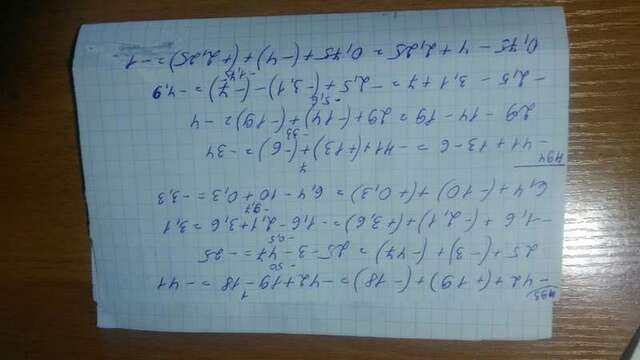 493
-42 + (+19) + (-18) = -42+19-18 = -41
-50
25 + (-3) + (-47) = 25-3-47 = -25
-0,5
-1,6 + (-2,1) + (+3,6) = -1,6-2,1+3,6 = 3,1
-9,7
6,4 + (-10) + (+0,3) = 6,4-10+0,3 = -3,3
494
7
-41+13-6 = -41+(+13)+(-6) = -34
-33
29-14-19 = 29+(-14)+(-19) = -4
-5,6
-2,5 - 3,1+7 = -2,5+(-3,1)-(-7) = -4,9
-1,75
0,75 - 4 + 2,25 = 0,75+(-4)+(+2,25) = -1